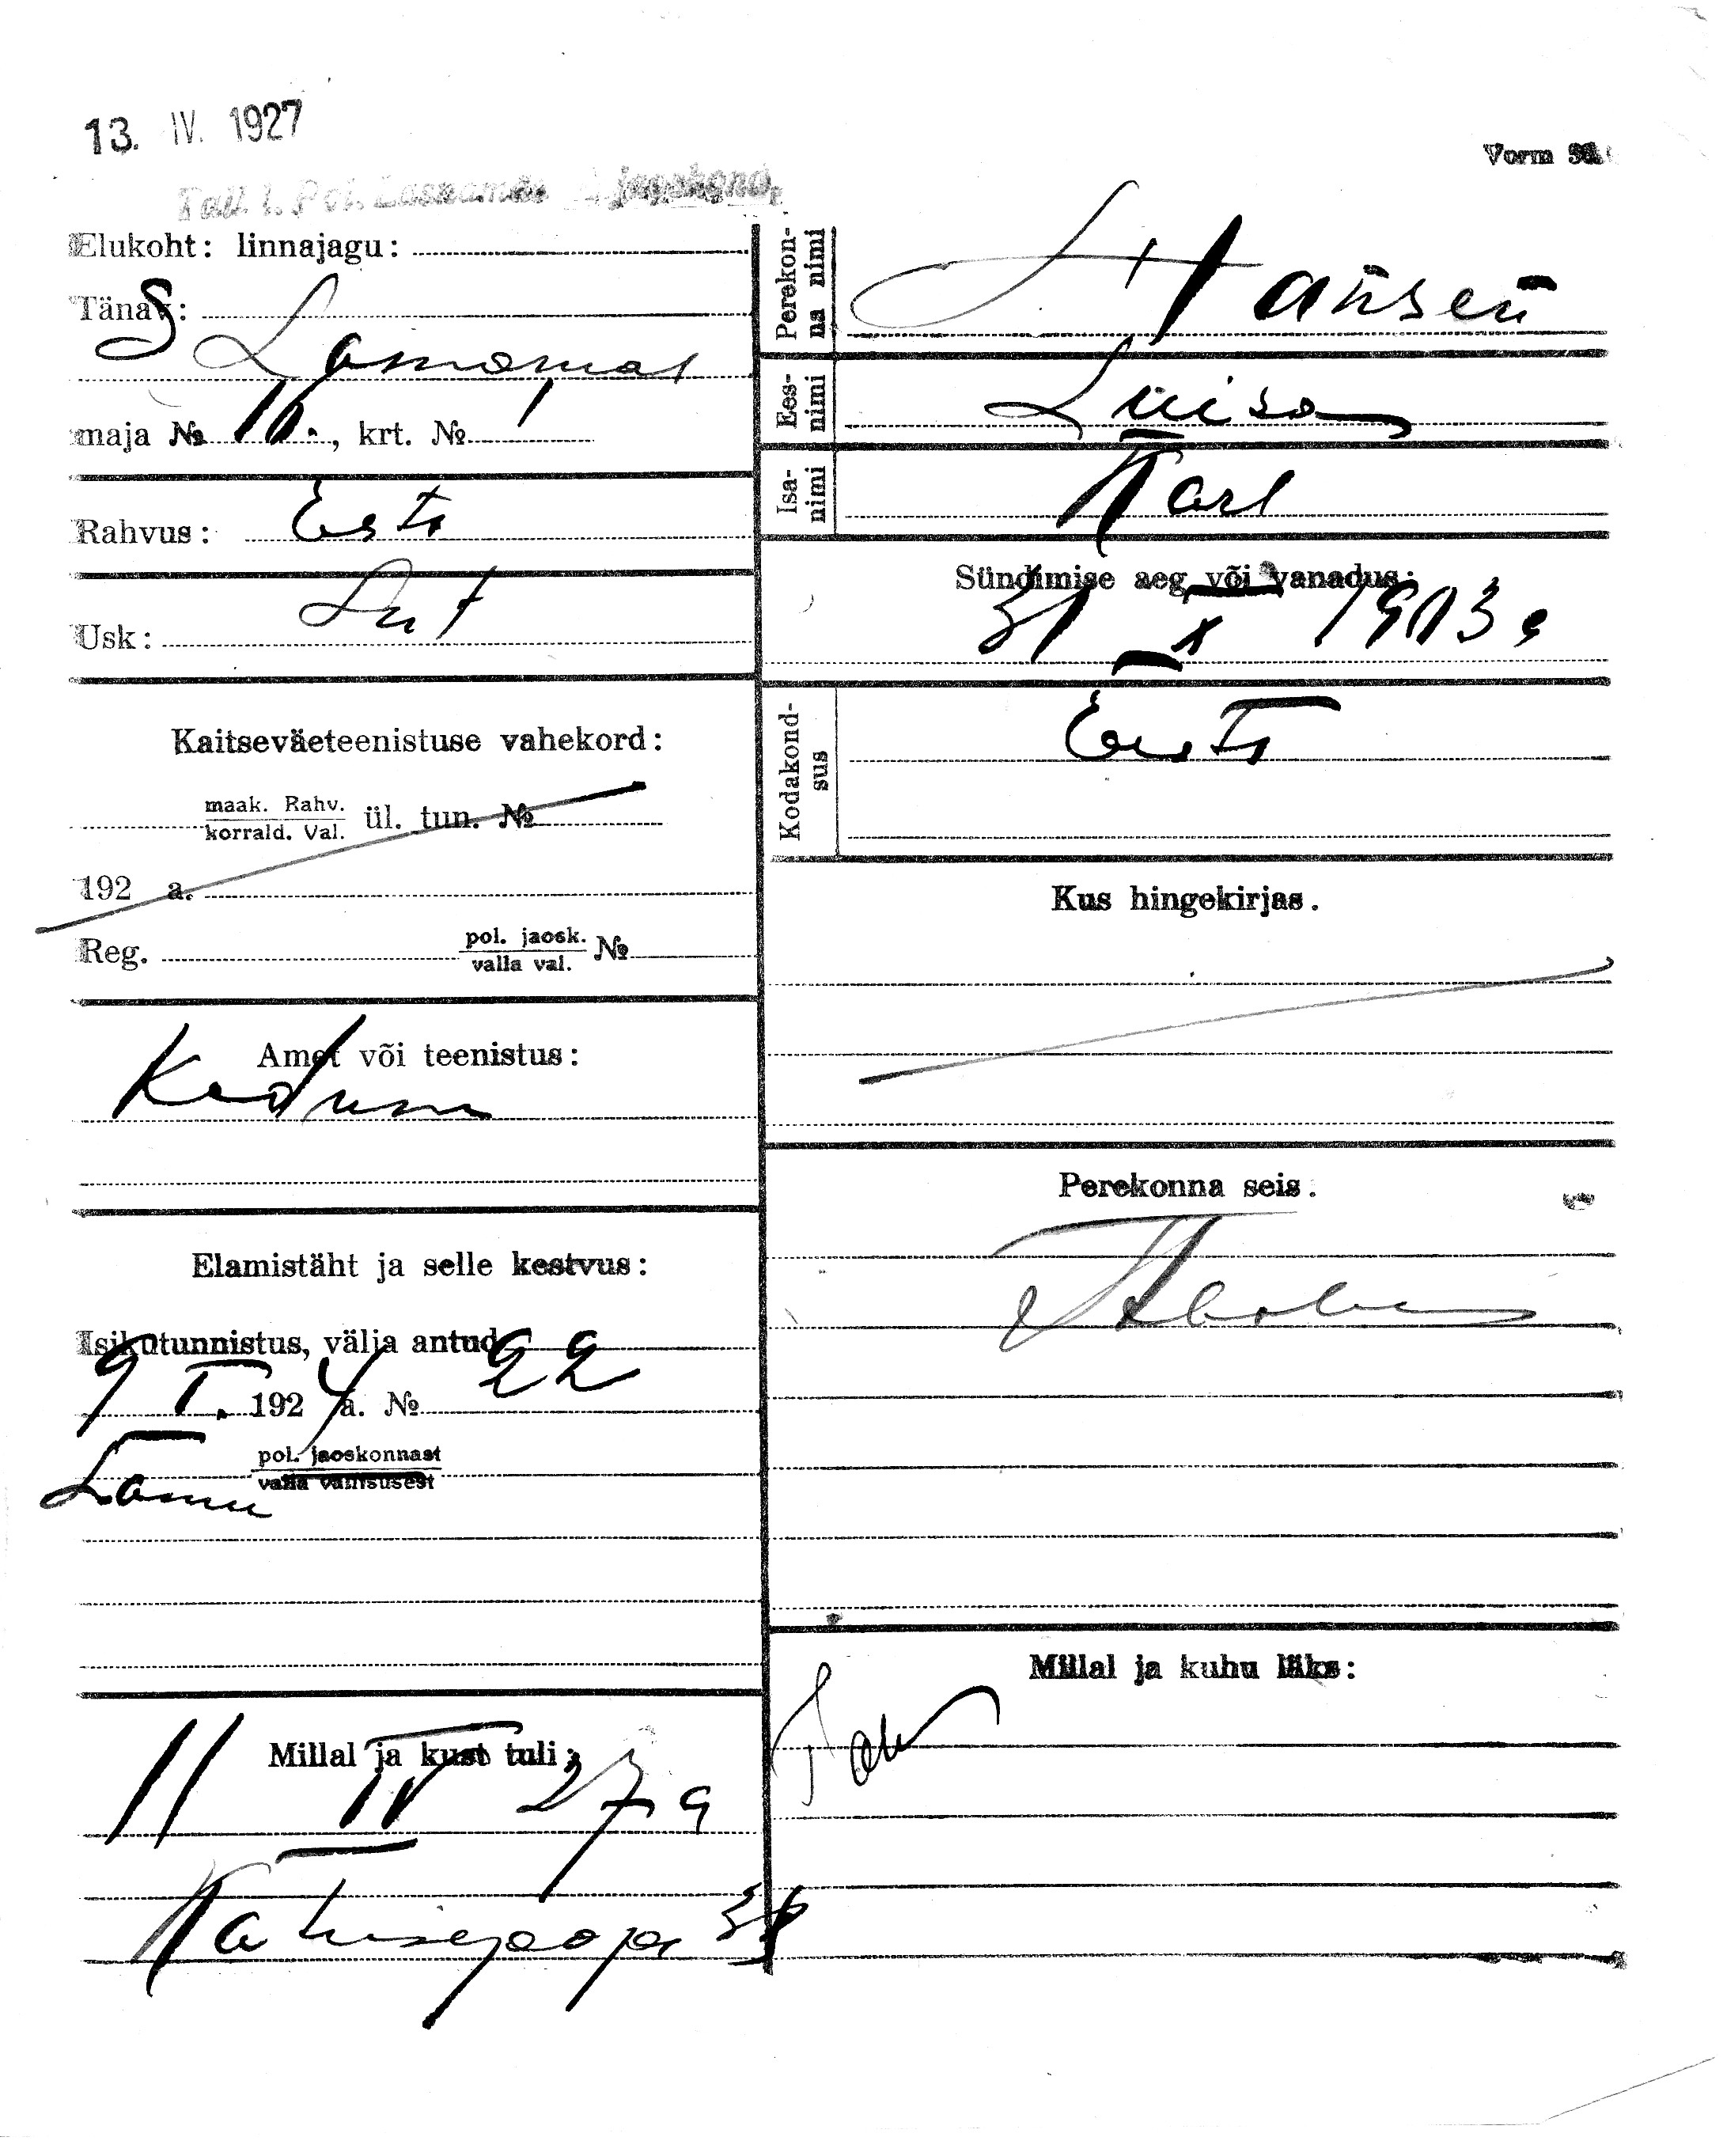 13. IV. 1927
Vorm
Tall. L. Pol. Lasnamäe jaoskond.
Elukoht: linnajagu:
Tänav:
S Lasnamäe
maja № 16., krt. № 1
Rahvus: Eesti
Usk: Lut
Kaitseväeteenistuse vahekord:
maak. Rahv.
korrald. Val. ül. tun. №
192 a.
Reg. pol. jaosk.
valla val. №
Amet või teenistus:
Elamistäht ja selle kestvus:
Isikutunnistus, välja antud
9 I. 1924 a. № 22
pol. jaoskonnast
valla valitsusest
Lasna
Millal ja kust tuli:
11 IV 27 a
Perekon-
na nimi
Hansen
Ees-
nimi
Luisa
Isa-
nimi
Karl
Sündimise aeg või vanadus:
31 X 1903
Kodakond-
sus
Eesti
Kus hingekirjas.
Perekonna seis.
Millal ja kuhu läks: